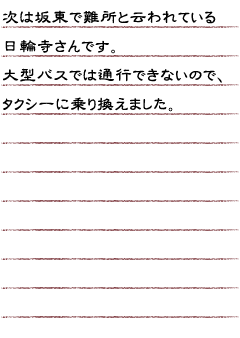 次は坂東で難所と云われている
日輪寺さんです。
大型バスでは通行できないので、
タクシーに乗り換えました。